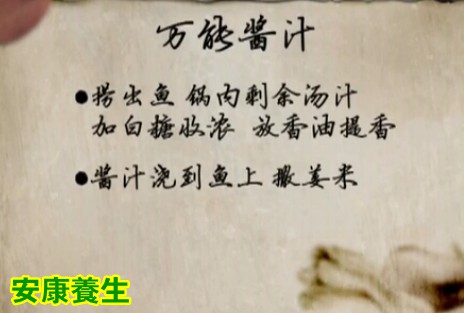 万能酱汁
●捞出鱼 锅内剩余汤汁
加白糖收浓 放香油提香
●酱汁浇到鱼上 撒姜米
安康養生